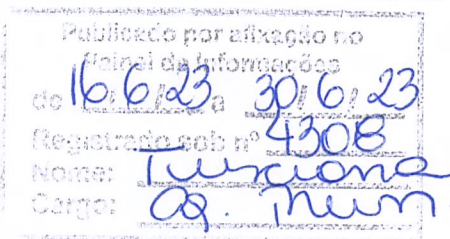 Publicado por afixação no
Painel de Informações
de 16/6/23 a 30/6/23
Registrado sob nº 4308
Nome: Tusciana
Cargo: Ag. Mun